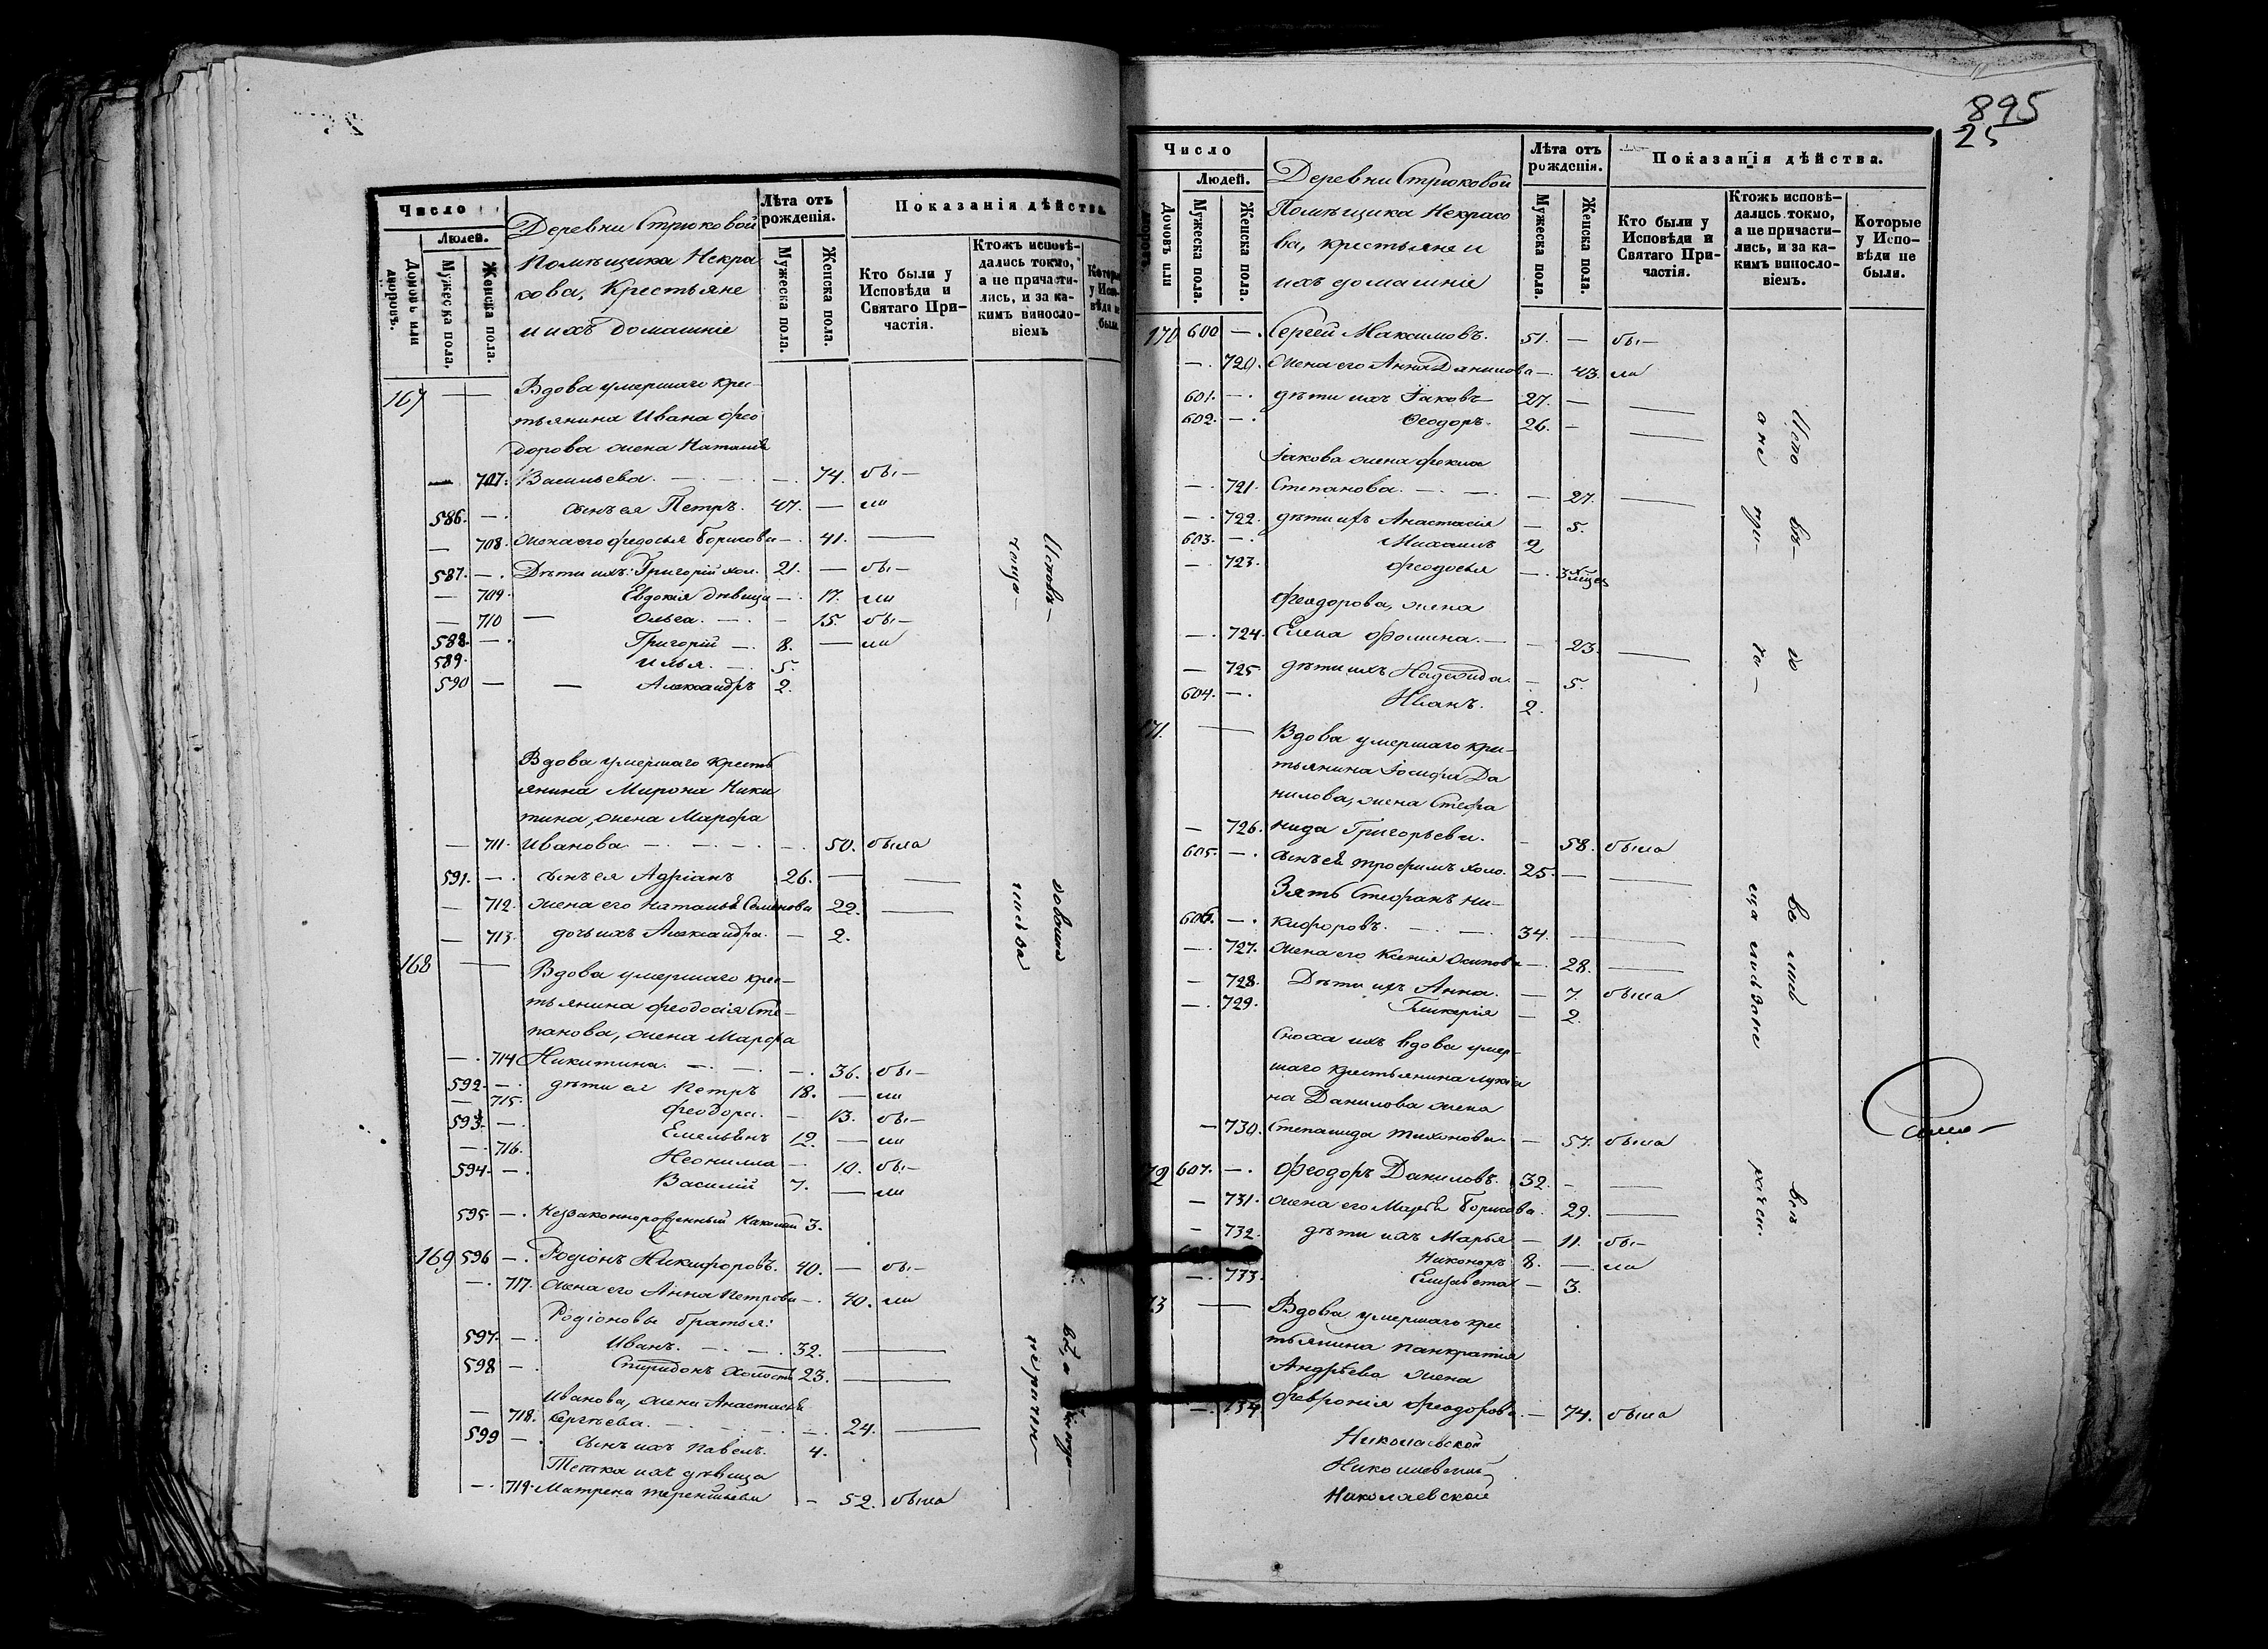 Число
Людей.
Домовъ или дворовъ.
Мужеска пола.
Женска пола.
Деревни Стрюковой
Помѣщика Некра
сова, Крестьяне
и ихъ домашніе
Лѣта отъ рожденія.
Мужеска пола.
Женска пола.
Показанія дѣйства.
Кто были у Исповѣди и Святаго Причастія.
Ктожъ исповѣдались токмо, а не причастились, и за какимъ винословіемъ
167 — Вдова умершаго крес-
тьянина Ивана Фео
дорова жена Наталья
— 707. Васильева. — 74. бы-
586. — сынъ ея Петръ. 47. — ли
— 708. жена его Федосья Борисова — 41. —
587. — Дѣти ихъ: Григорій хол. 21. — бы-
— 709. Евдокия дѣвица — 17. ли
— 710 — Ольга. — 15. бы-
588. — Григорій — 8. — ли
589. Илья. — 5.
590 — — Александръ 2.
Вдова умершаго кресть
янина Мирона Ники
тина, жена Марфа
— 711. Иванова. — 50. была
591. — сынъ ея Адріанъ 26. — —
— 712. жена его Наталья Семенова 22. —
— 713. дочь ихъ Александра. — 2.
168 — Вдова умершаго крес-
тьянина Феодосія Сте-
панова, жена Марфа
— 714 Никитина. — 36. бы-
592. — дѣти ея Петръ 18. — ли
— 715. Феодора. — 13. бы-
593. — Емельянъ 12. — ли
— 716. Неонилла — 10. бы-
594. — Василій 7. — ли
595. — Незаконнорожденный Николай 3.
169 596 — Родіонъ Никифоровъ. 40. — бы-
— 717. жена его Анна Петрова — 40. ли
Родіоновы братья:
597. — Иванъ. — 32. —
598 — Спиридонъ холостъ 23. —
Иванова, жена Анастасья
— 718. Сергѣева. — 24. —
599 — сынъ ихъ Павелъ. 4.
Тетка ихъ дѣвица
— 719. Матрена Терентьева — 52. была
895
25
Число
Людей.
Домовъ или
Мужеска пола.
Женска пола.
Деревни Стрюковой
Помѣщика Некрасо
ва, крестьяне и
ихъ домашніе
Лѣта отъ рожденія.
Мужеска пола.
Женска пола.
Показанія дѣйства.
Кто были у Исповѣди и Святаго Причастія.
Ктожъ исповѣдались токмо, а не причастились, и за какимъ винословіемъ.
Которые у Исповѣди не были.
170 600 — Сергей Максимовъ. 51. — бы-
— 720. жена его Анна Данилова — 43. ли
601. — дѣти ихъ Іаковъ 27. — —
602. — Ѳеодоръ. 26. — —
Іакова жена Фекла
— 721. Степанова. — 27. —
— 722. дѣти ихъ Анастасія — 5.
603. — Михаилъ 2
— 723. Феодосья — 3
Феодорова, жена
— 724. Елена Фомина. — 23. —
— 725 дѣти ихъ Надежда. — 5.
604. — Иванъ. 2.
171. — Вдова умершаго крес-
тьянина Іосифа Да
нилова, жена Стефа
— 726. нида Григорьева. — 58. была
605. — сынъ ея Трофимъ холо. 25. — —
Зять Стефанъ Ни-
606. — кифоровъ. — 34. —
— 727. жена его Ксенія Осипова — 28. —
— 728. Дѣти ихъ Анна. — 7. была
— 729. Гликерія — 2.
Сноха ихъ вдова умер-
шаго крестьянина Лукія
на Данилова жена
— 730. Степанида Тихонова. — 57. была
172 607. — Феодоръ Даниловъ. 32. — —
— 731. жена его Марья Борисова. 29. —
— 732. дѣти ихъ Марья — 11. бы-
Никоноръ 8. — ли
— 733. Елизавета — 3.
173 — Вдова умершаго крес
тьянина Панкратія
Андрѣева жена
— 734 Февронія Феодорова. — 74. была
Николаевской
Николаевской
Николаевской